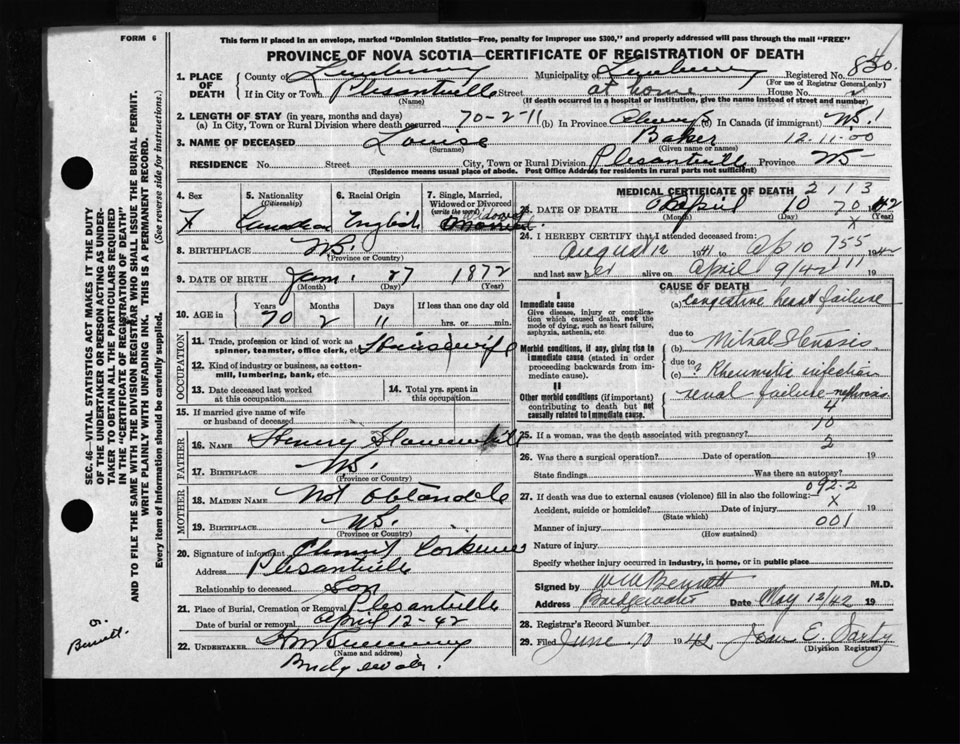 FORM 6
This form if placed in an envelope, marked "Dominion Statistics—Free, penalty for improper use $300," and properly addressed will pass through the mail "FREE"
PROVINCE OF NOVA SCOTIA—CERTIFICATE OF REGISTRATION OF DEATH
1. PLACE OF DEATH County of Lunenburg Municipality of Lunenburg Registered No. 830.
(For use of Registrar General only)
If in City or Town Plesantville Street at home House No.
(Name) (If death occurred in a hospital or institution, give the name instead of street and number)
2. LENGTH OF STAY (in years, months and days)
(a) In City, Town or Rural Division where death occurred 70-2-11 (b) In Province Always (d) In Canada (if immigrant) NS.
3. NAME OF DECEASED Louise Baker 12-11-00
(Surname) (Given name or names)
RESIDENCE No. Street City, Town or Rural Division Plesantville Province NS
(Residence means usual place of abode. Post Office Address for residents in rural parts not sufficient)
SEC. 46—VITAL STATISTICS ACT MAKES IT THE DUTY
OF THE UNDERTAKER OR PERSON ACTING AS UNDER-
TAKER TO OBTAIN ALL THE PARTICULARS REQUIRED
IN THE "CERTIFICATE OF REGISTRATION OF DEATH"
AND TO FILE THE SAME WITH THE DIVISION REGISTRAR WHO SHALL ISSUE THE BURIAL PERMIT.
WRITE PLAINLY WITH UNFADING INK. THIS IS A PERMANENT RECORD.
Every item of Information should be carefully supplied. (See reverse side for instructions.)
4. Sex 5. Nationality (Citizenship) 6. Racial Origin 7. Single, Married, Widowed or Divorced (write the word) Widowed
F Canada English Married
8. BIRTHPLACE NS.
(Province or Country)
9. DATE OF BIRTH Jan. 27 1872
(Month) (Day) (Year)
10. AGE If Years Months Days If less than one day old
70 2 11 hrs. or min.
OCCUPATION
11. Trade, profession or kind of work as spinner, teamster, office clerk, etc. Housewife
12. Kind of industry or business, as cotton-mill, lumbering, bank, etc.
13. Date deceased last worked at this occupation
14. Total yrs. spent in this occupation
15. If married give name of wife or husband of deceased
FATHER
16. NAME Henry
17. BIRTHPLACE NS.
(Province or Country)
MOTHER
18. MAIDEN NAME Not Obtanable
19. BIRTHPLACE NS.
(Province or Country)
20. Signature of informant
Address Plesantville
Relationship to deceased Son
21. Place of Burial, Cremation or Removal Plesantville
Date of burial or removal April 12-42
22. UNDERTAKER
(Name and address)
Bridgewater.
MEDICAL CERTIFICATE OF DEATH 2113
23. DATE OF DEATH April 10 70 42
(Month) (Day) (Year)
X
24. I HEREBY CERTIFY that I attended deceased from:
August 12 1941 to Ap 10 755 1942
and last saw her alive on April 9/42 111 19
CAUSE OF DEATH
I
Immediate cause
Give disease, injury or complication which caused death, not the mode of dying, such as heart failure, asphyxia, asthenia, etc
(a) Congestive heart failure
due to
Morbid conditions, if any, giving rise to immediate cause (stated in order proceeding backwards from immediate cause).
(b) Mitral Stenosis
due to
(c) Rheumatic infection
II
Other morbid conditions (if important) contributing to death but not causally related to immediate cause.
renal failure nephrosis
4
10
25. If a woman, was the death associated with pregnancy?
2
26. Was there a surgical operation? Date of operation 19
State findings Was there an autopsy?
092-2
27. If death was due to external causes (violence) fill in also the following:
X
Accident, suicide or homicide? Date of injury 19
(State which) 001
Manner of injury
(How sustained)
Nature of injury
Specify whether injury occurred in industry, in home, or in public place
Signed by W A Bennett M.D.
Address Bridgewater Date May 12/42 19
28. Registrar's Record Number
29. Filed June 10 1942 Jean E. Sarty
(Division Registrar)
Dr.
Bennett.